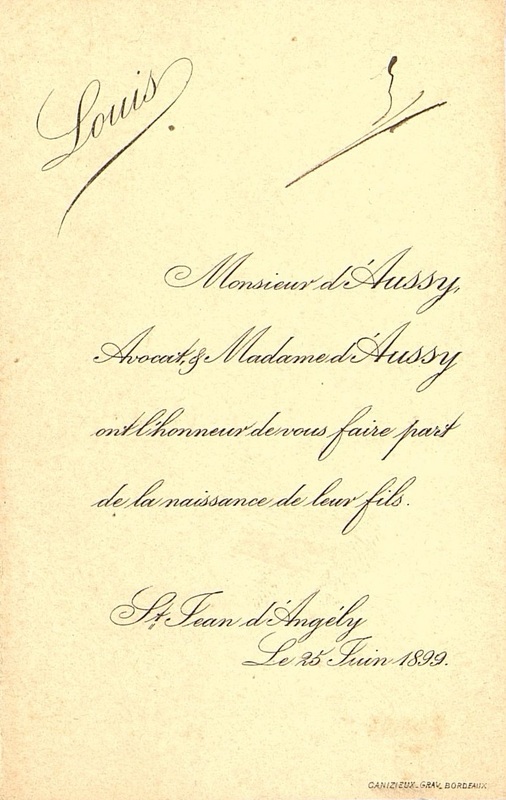 Louis
Monsieur d'Aussy,
Avocat, & Madame d'Aussy
ont l'honneur de vous faire part
de la naissance de leur fils.
St Jean d'Angély
Le 25 Juin 1899.
CANIZIEUX-GRAV. BORDEAUX